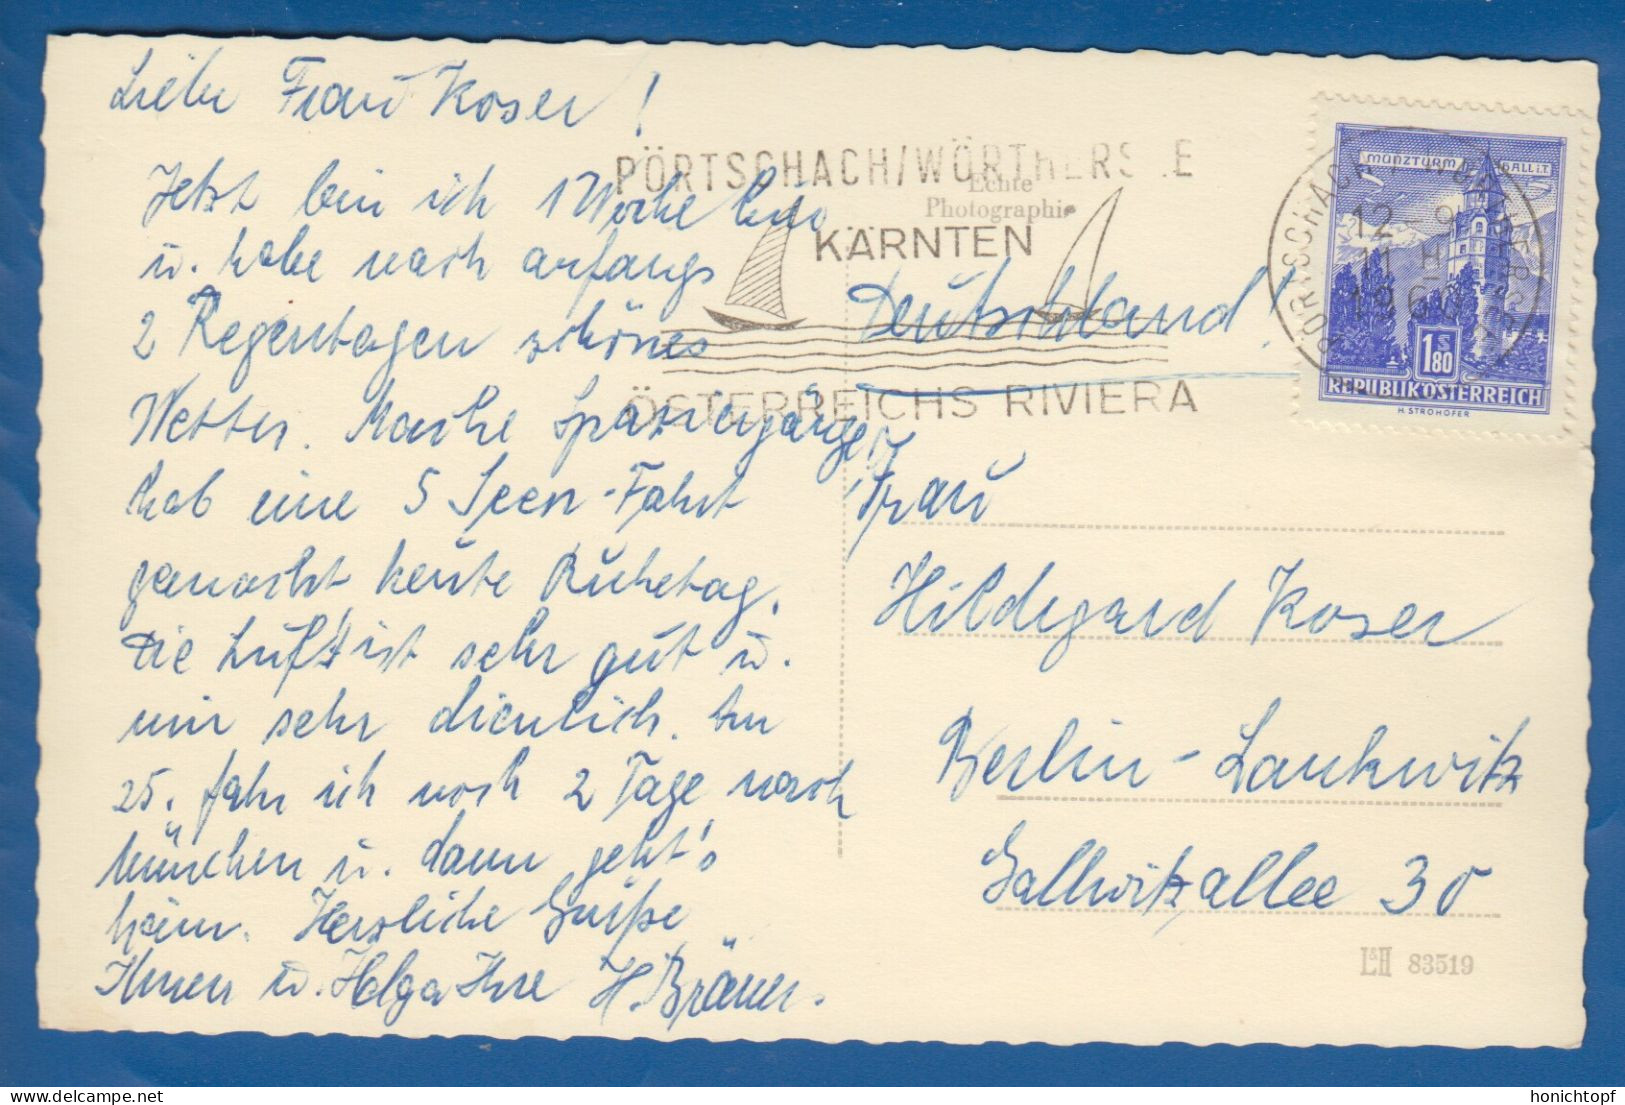 Liebe Frau Koser!
Jetzt bin ich 1 Woche hier
u. habe nach anfangs
2 Regentagen schönes
Wetter. Mache Spaziergänge,
hab eine 5 Seen-Fahrt
gemacht heute Ruhetag.
Die Luft ist sehr gut u.
mir sehr dienlich. Am
25. fahr ich noch 2 Tage nach
München u. dann geht's
heim. Herzliche Grüße
Ihnen u. Helga Ihre H. Bräuer.
PÖRTSCHACH/WÖRTHERS.E
KÄRNTEN
ÖSTERREICHS RIVIERA
Echte
Photographie
MÜNZTURM HALL i.T.
1 S 80
REPUBLIK ÖSTERREICH
H. STROHOFER
12-9
11 H
1960
Deutschland!
Frau
Hildegard Koser
Berlin-Lankwitz
Gallwitzallee 30
L&H 83519
honichtopf